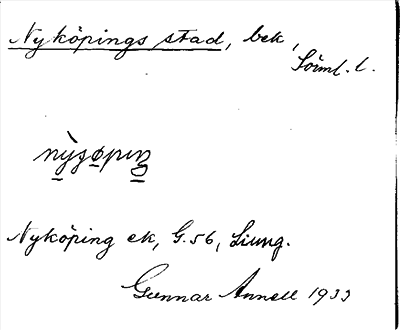 Nyköpings stad, bek,
Sörml. l.
Nyköping ek, G. 56, Ljung.
Gunnar Annell 1933